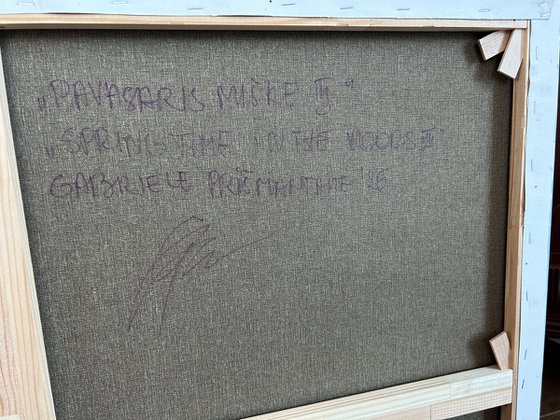 „PAVASARIS MIŠKE III“
„SPRING TIME IN THE WOODS III“
GABRIELE PRIŠMANTAITE '25